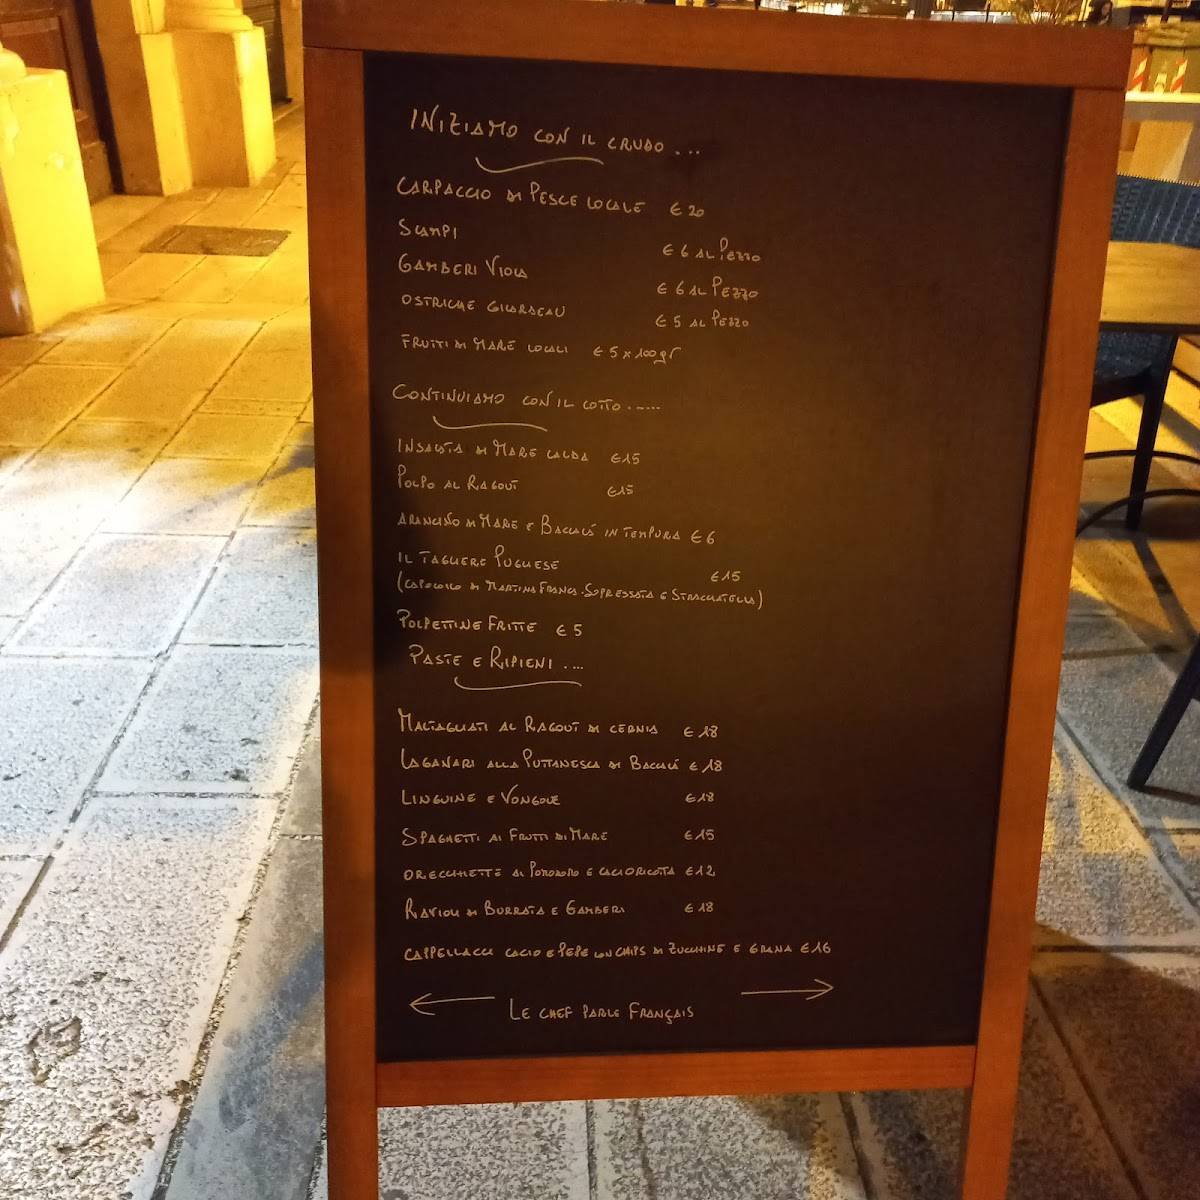 INIZIAMO CON IL CRUDO...
CARPACCIO DI PESCE LOCALE € 20
SCAMPI € 6 AL PEZZO
GAMBERI VIOLA € 6 AL PEZZO
OSTRICHE GILARDEAU € 5 AL PEZZO
FRUTTI DI MARE LOCALI € 5 x 100gr
CONTINUIAMO CON IL COTTO......
INSALATA DI MARE CALDA €15
POLPO AL RAGOUT €15
ARANCINO DI MARE E BACCALÁ IN TEMPURA € 6
IL TAGLIERE PUGLIESE €15
(CAPOCOLLO DI MARTINA FRANCA-SOPRESSATA E STRACCIATELLA)
POLPETTINE FRITTE € 5
PASTE E RIPIENI....
MALTAGLIATI AL RAGOUT DI CERNIA € 18
LAGANARI ALLA PUTTANESCA DI BACCALÁ € 18
LINGUINE E VONGOLE €18
SPAGHETTI AI FRUTTI DI MARE €15
ORECCHIETTE AL POMODORO E CACIORICOTTA €12
RAVIOLI DI BURRATA E GAMBERI € 18
CAPPELLACCI CACIO E PEPE CON CHIPS DI ZUCCHINE E GRANA €16
← LE CHEF PARLE FRANÇAIS →